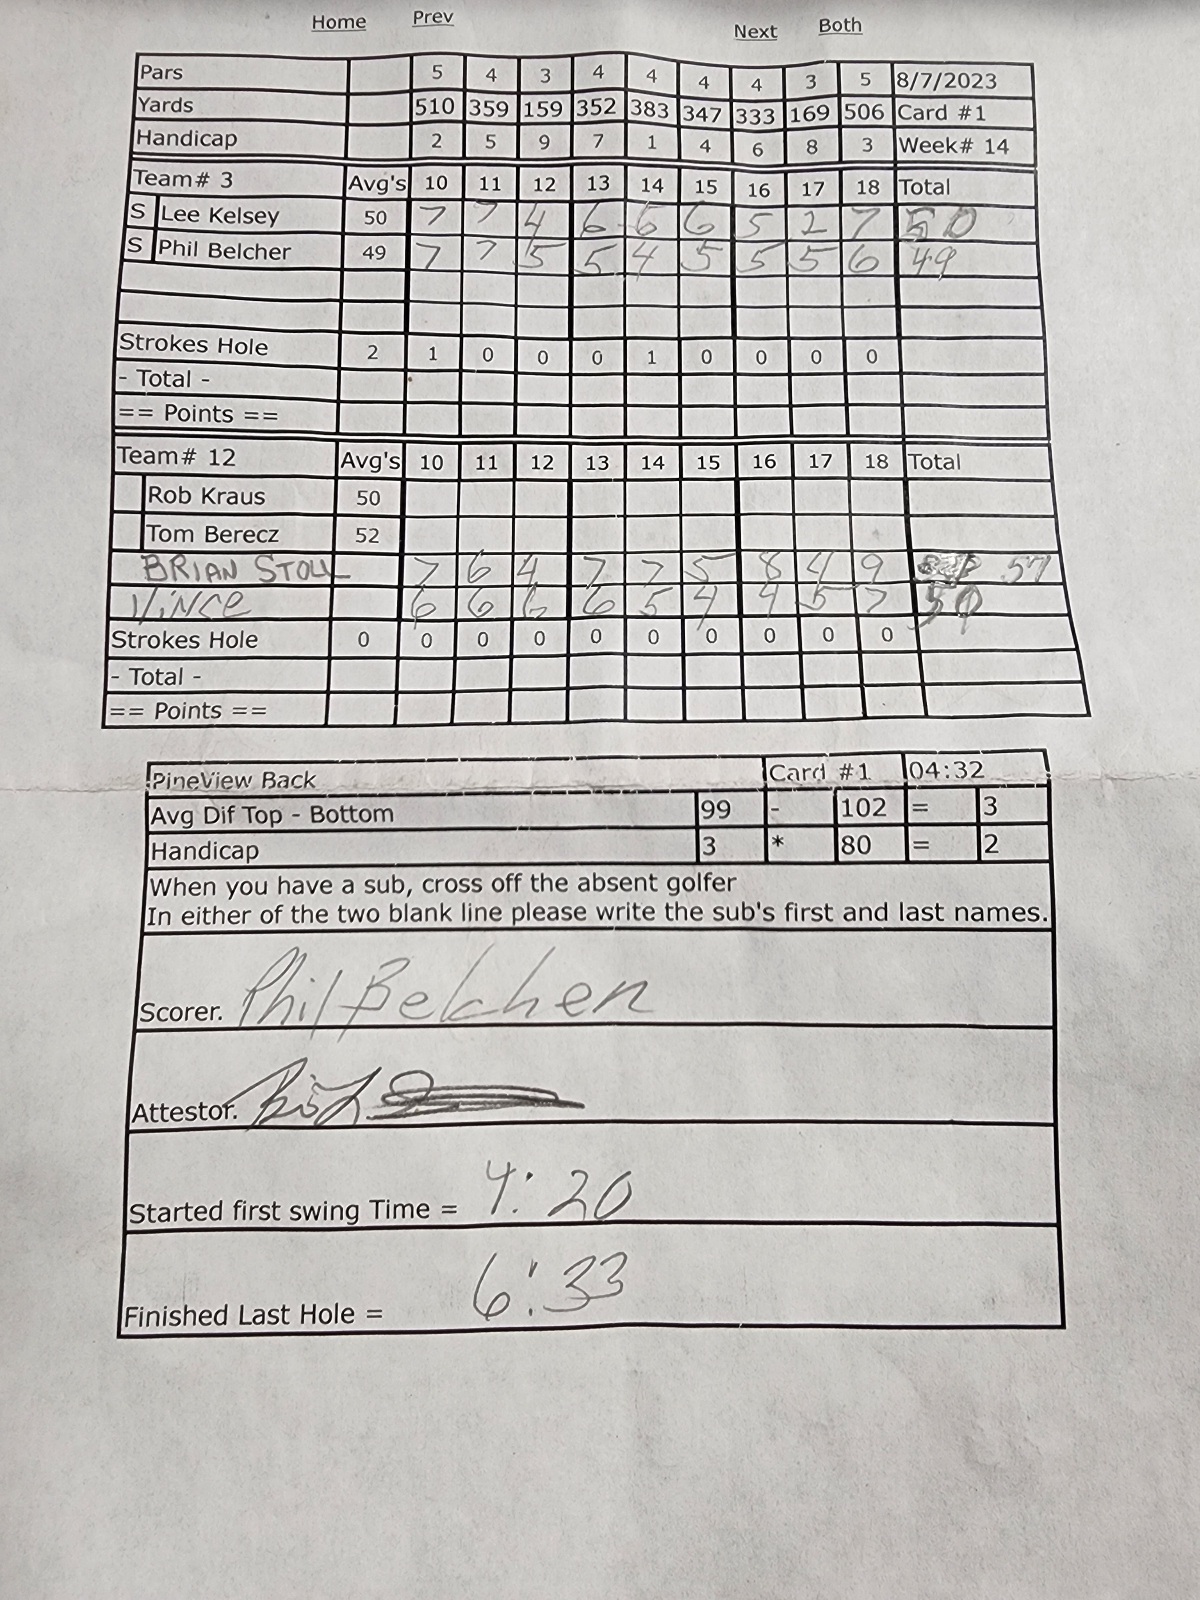 Home Prev Next Both
Pars 5 4 3 4 4 4 4 3 5 8/7/2023
Yards 510 359 159 352 383 347 333 169 506 Card #1
Handicap 2 5 9 7 1 4 6 8 3 Week# 14
Team# 3 Avg's 10 11 12 13 14 15 16 17 18 Total
S Lee Kelsey 50 7 7 4 6 6 6 5 2 7 50
S Phil Belcher 49 7 7 5 5 4 5 5 5 6 49
Strokes Hole 2 1 0 0 0 1 0 0 0 0
- Total -
== Points ==
Team# 12 Avg's 10 11 12 13 14 15 16 17 18 Total
Rob Kraus 50
Tom Berecz 52
BRIAN STOLL 7 6 4 7 7 5 8 4 9 57
Vince 6 6 6 6 5 4 4 5 7
Strokes Hole 0 0 0 0 0 0 0 0 0 0
- Total -
== Points ==
PineView Back Card #1 04:32
Avg Dif Top - Bottom 99 - 102 = 3
Handicap 3 * 80 = 2
When you have a sub, cross off the absent golfer
In either of the two blank line please write the sub's first and last names.
Scorer. Phil Belcher
Attestor.
Started first swing Time = 4:20
Finished Last Hole = 6:33